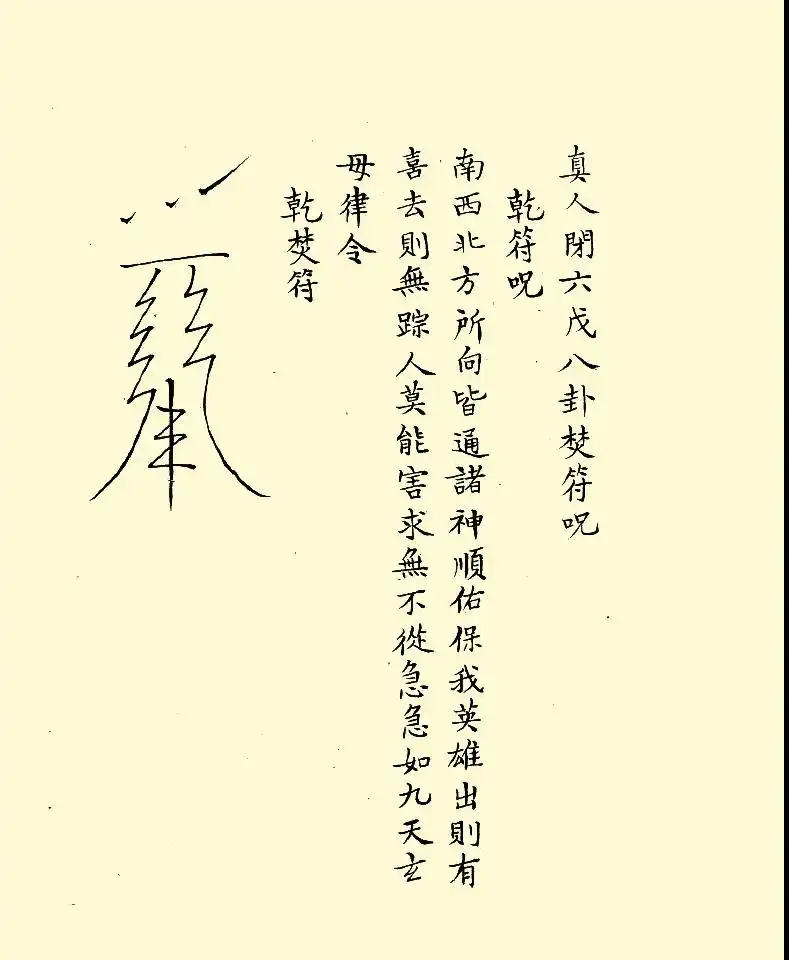 真人閉六戊八卦焚符呪
乾符呪
南西北方所向皆通諸神順佑保我英雄出則有
喜去則無踪人莫能害求無不從急急如九天玄
母律令
乾焚符